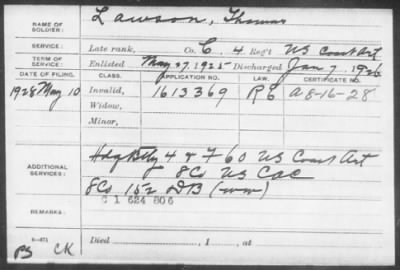 NAME OF SOLDIER: Lawson, Thomas
SERVICE: Late rank, Co. C. 4 Reg't US Coast Art
TERM OF SERVICE: Enlisted May 27, 1925 Discharged Jan 7, 1926
DATE OF FILING. CLASS. APPLICATION NO. LAW. CERTIFICATE NO.
1928 May 10 Invalid, 1613369 RE A-8-16-28
Widow,
Minor,
ADDITIONAL SERVICES: Hdq Btty 4 & 7 60 US Coast Art
8 Co US CAC
8 Co 152 DB (WW)
C 1 624 806
REMARKS:
Died , 1 , at
CK